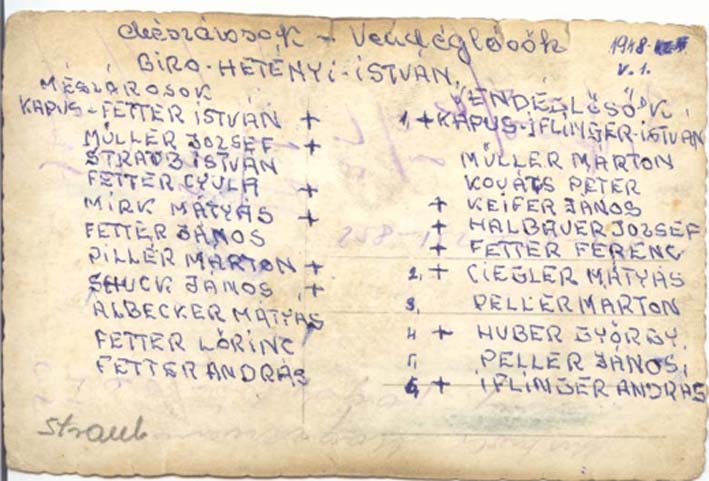 Mészárosok - Vendéglősök
1948
V. 1.
BIRO-HETÉNYI-ISTVÁN.
MÉSZÁROSOK
KAPUS-FETTER ISTVÁN +
MÜLLER JOZSEF +
STRAUB ISTVÁN
FETTER GYULA +
MIRK MÁTYÁS +
FETTER JÁNOS
PILLER MARTON +
SHUCK JÁNOS +
ALBECKER MÁTYÁS
FETTER LŐRINC
FETTER ANDRÁS
Straub
VENDÉGLŐSÖK
1, + KAPUS-IFLINGER-ISTVÁN
MÜLLER MARTON
KOVÁTS PÉTER
+ KEIFER JÁNOS
+ HALBAUER JOZSEF
+ FETTER FERENC
2, + CIEGLER MÁTYÁS
3, PELLER MARTON
4 + HUBER GYÖRGY,
5, PELLER JÁNOS,
6, + IFLINGER ANDRÁS